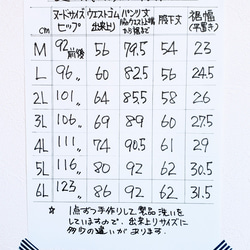 cm ヌードサイズ ヒップ ウエストゴム 出来上り パンツ丈 脇ウエスト上端から裾まで 股下丈 裾幅 (平置き)
M 92前後 56 79.5 54 23
L 96〃 60 82.5 56 24.5
2L 101〃 64 85.5 58 26
3L 106〃 69 89 60 27.5
4L 111〃 74 90.5 61 29
5L 116〃 80 92 62 30.5
6L 123〃 86 92 62 31.5
☆ 1点ずつ手作りして製品洗いを
していますので、出来上りサイズに
多少の違いが あります。